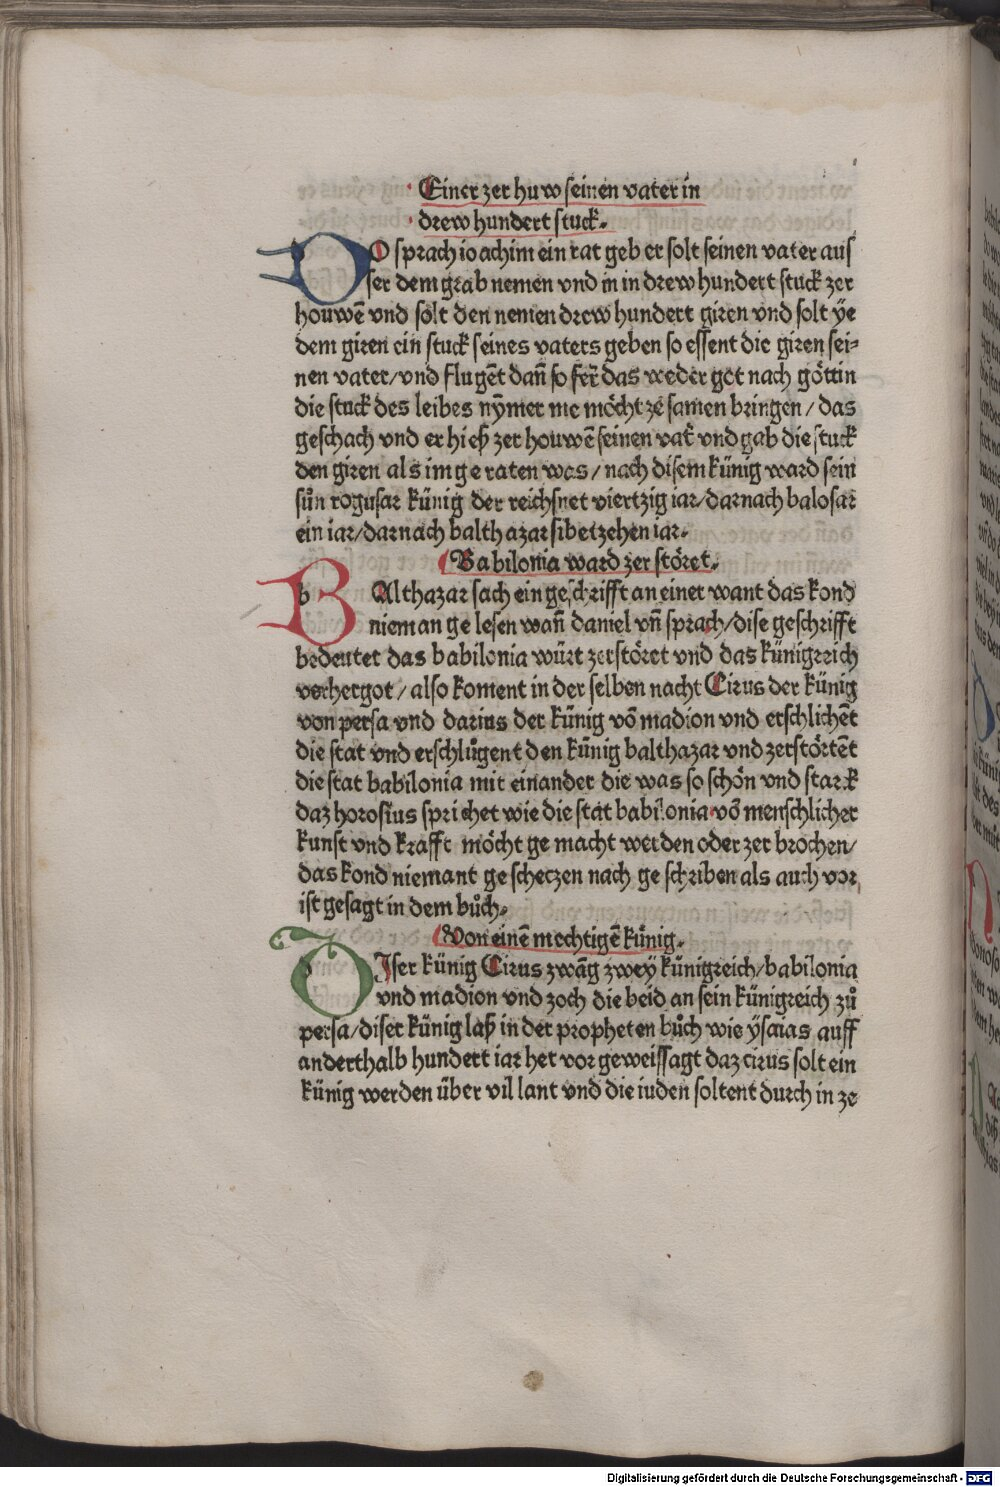 Einer zer huw seinen vater in
drew hundert stuck.
DO sprach ioachim ein rat geb er solt seinen vater aus
ser dem grab nemen vnd in in drew hundert stuck zer
houwē vnd solt den nemen drew hundert giren vnd solt ÿe
dem giren ein stuck seines vaters geben so essent die giren sei⸗
nen vater/vnd flugēt dañ so ferr̄ das weder got nach göttin
die stuck des leibes nȳmer me möcht ze samen bringen/das
geschach vnd er hieß zer houwē seinen vat̄ vnd gab die stuck
den giren als im ge raten was/nach disem künig ward sein
sůn rogusar künig der reichsnet viertzig iar/darnach balosar
ein iar/darnach balthazar sibetzehen iar.
Babilonia ward zer störet.
BAlthazar sach ein geschrifft an einer want das kond
nieman ge lesen wañ daniel vñ sprach/dise geschrifft
bedeutet das babilonia würt zerstöret vnd das künigreich
verhergot/also koment in der selben nacht Cirus der künig
von persa vnd darius der künig vō madion vnd erschlichēt
die stat vnd erschlůgent den künig balthazar vnd zerstörtēt
die stat babilonia mit einander die was so schön vnd starck
daz horosius sprichet wie die stat babilonia vō menschlicher
kunst vnd krafft möcht ge macht werden oder zer brochen/
das kond niemant ge schetzen nach ge schriben als auch vor
ist gesagt in dem bůch.
Von einē mechtigē künig.
DIser künig Cirus zwāg zweÿ künigreich/babilonia
vnd madion vnd zoch die beid an sein künigreich zů
persa/diser künig laß in der propheten bůch wie ÿsaias auff
anderthalb hundert iar het vor geweissagt daz cirus solt ein
künig werden über vil lant vnd die iuden soltent durch in ze
Digitalisierung gefördert durch die Deutsche Forschungsgemeinschaft - DFG